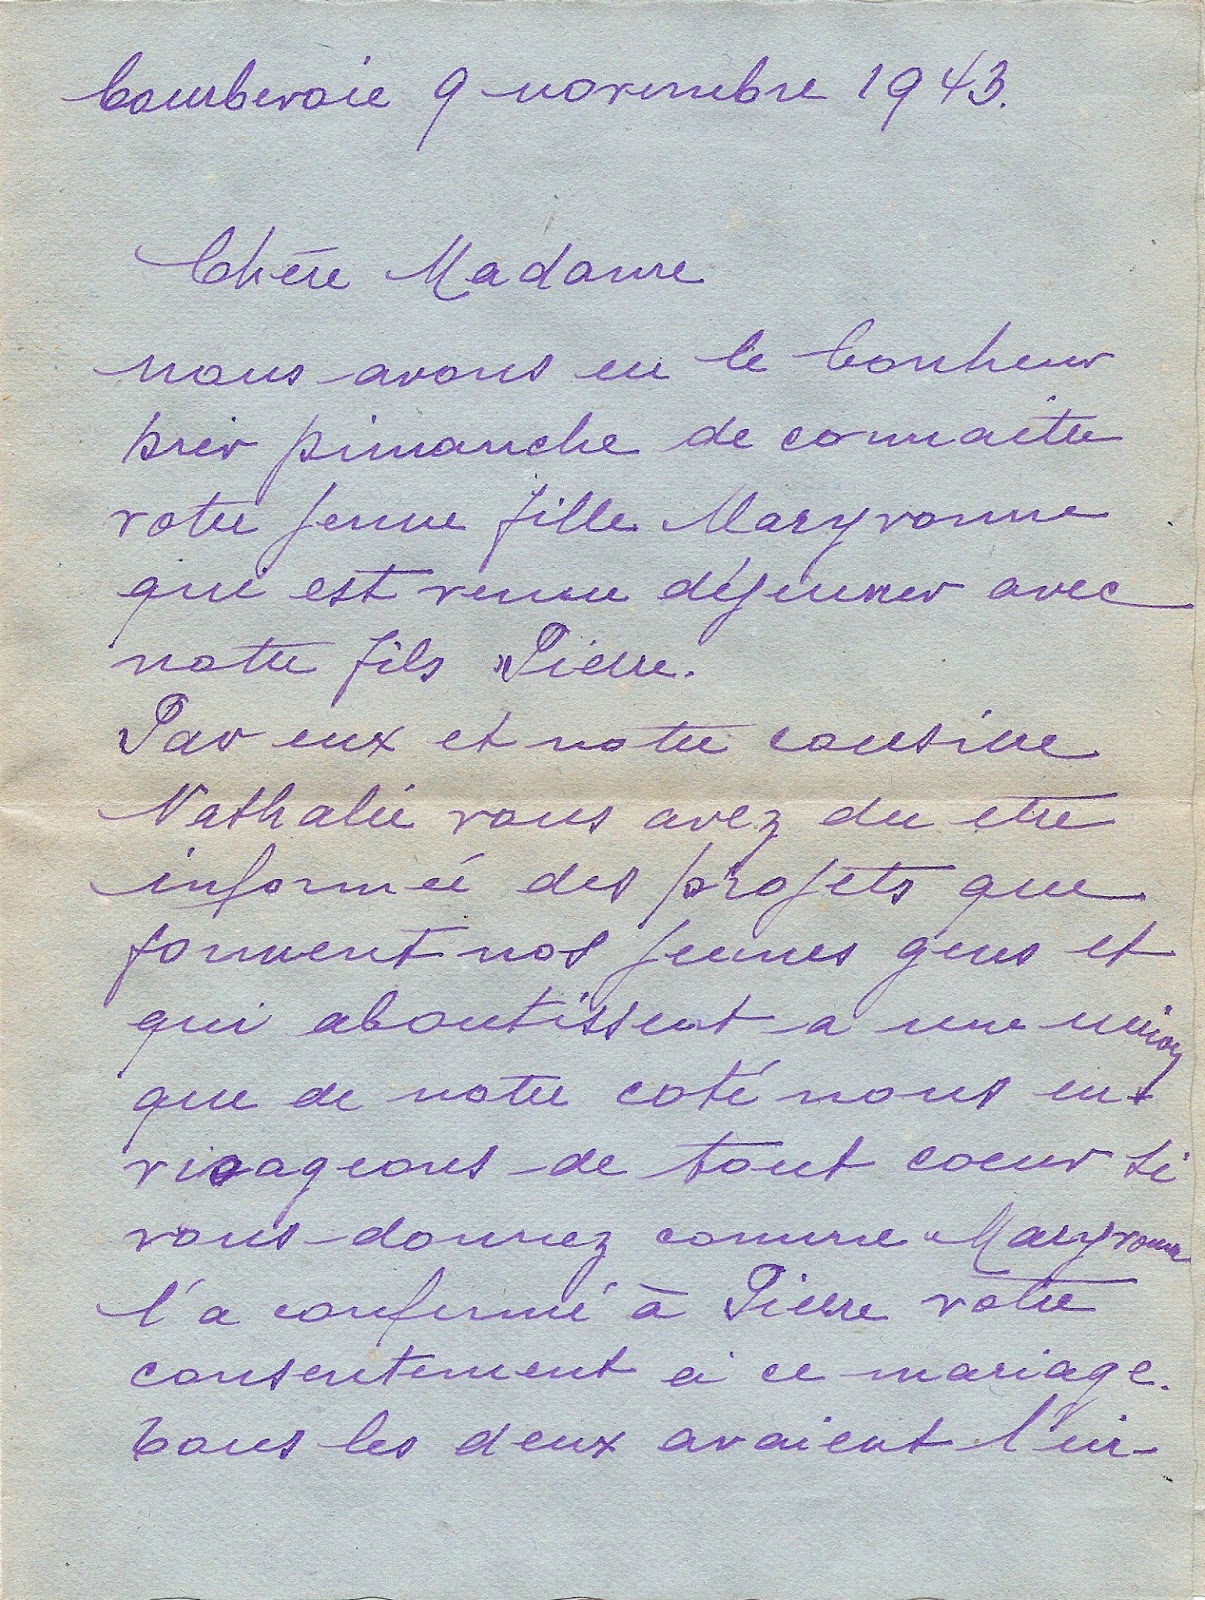 Courbevoie 9 novembre 1943.
Chère Madame
nous avons eu le bonheur
hier dimanche de connaitre
votre jeune fille Maryvonne
qui est venue déjeuner avec
notre fils Pierre.
Par eux et notre cousine
Nathalie vous avez du etre
informée des projets que
forment nos jeunes gens et
qui aboutissent a une union
que de notre coté nous en-
visageons de tout coeur si
vous donnez comme Maryvonne
l'a confirmé à Pierre votre
consentement à ce mariage.
Tous les deux avaient l'in-